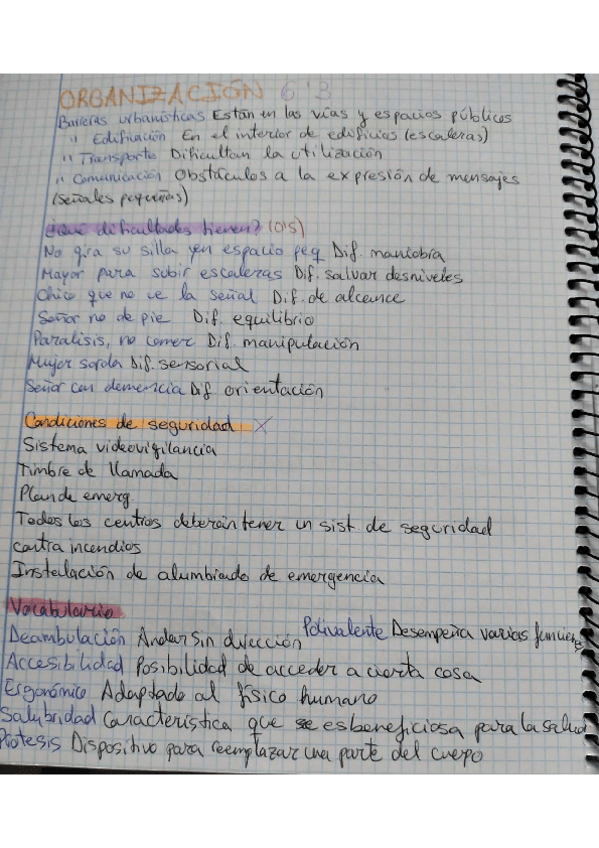 ORGANIZACIÓN 6'3
Barreras urbanísticas Están en las vías y espacios públicos
" Edificación En el interior de edificios (escaleras)
" Transporte Dificultan la utilización
" Comunicación Obstáculos a la expresión de mensajes
(señales pequeñas)
¿Qué dificultades tienen? (015)
No gira su silla en espacio peq Dif. maniobra
Mayor para subir escaleras Dif. salvar desniveles
Chico que no ve la señal Dif. de alcance
Señor no de pie Dif. equilibrio
Paralisis, no comer Dif. manipulación
Mujer sorda Dif. sensorial
Señor con demencia Dif orientación
Condiciones de seguridad X
Sistema videovigilancia
Timbre de llamada
Plan de emerg.
Todos los centros deberán tener un sist. de seguridad
contra incendios
Instalación de alumbrado de emergencia
Vocabulario
Deambulación Andar sin dirección Polivalente Desempeña varias funciones
Accesibilidad Posibilidad de acceder a cierta cosa
Ergonómico Adaptado al físico humano
Salubridad Característica que es beneficiosa para la salud
Prótesis Dispositivo para reemplazar una parte del cuerpo